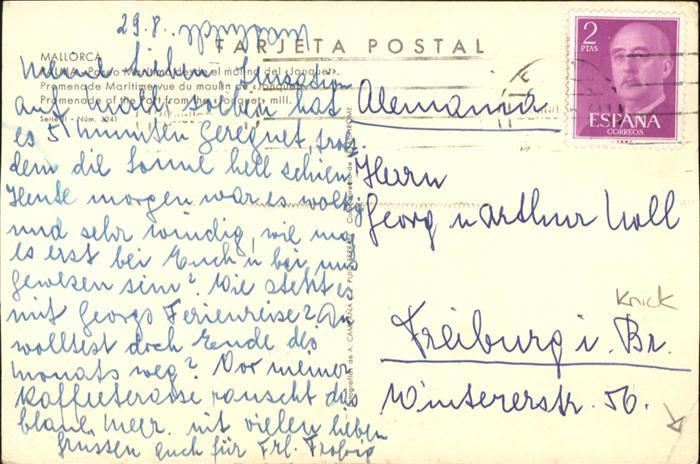 29.8. nachmitt.
TARJETA POSTAL
MALLORCA
PALMA - Paseo Marítimo desde el molino del «Jonquet».
Promenade Maritime vue du moulin de «Jonquet».
Promenade of the Port from the «Jonquet» mill.
Serie - Núm. 3241
Meine Lieben! Sensation
auf soeben hat
es 5 Minuten geregnet trotz
dem die Sonne hell schien.
Heute morgen war es wolkig
und sehr windig, wie mag
es erst bei Euch u. bei uns
gewesen sein? Wie steht es
mit Georgs Ferienreise? Du
wolltest doch Ende des
Monats weg? Vor meiner
Kaffeeterasse rauscht das
blaue Meer. Mit vielen lieben
Grüssen auch für Frl.
2
PTAS
ESPAÑA
CORREOS
Alemania
Herrn
Georg u Arthur Noll
Knick
Freiburg i. Br.
Wintererstr. 56.